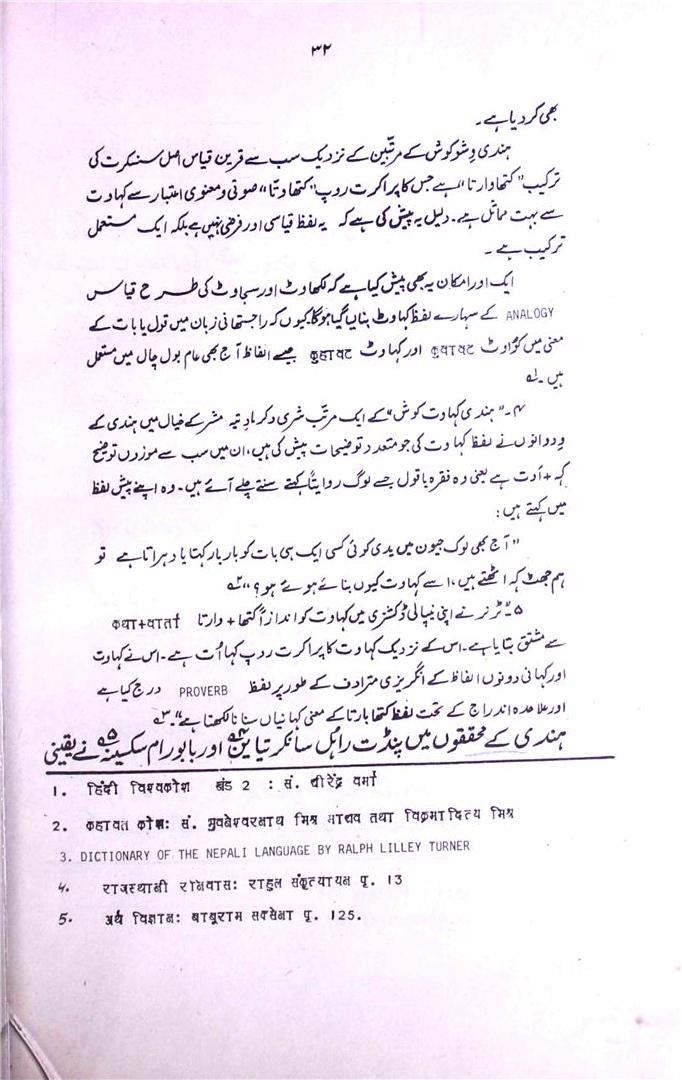 ۳۲
بھی کر دیا ہے۔
ہندی وشوکوش کے مرتبین کے نزدیک سب سے قرین قیاس اصل سنسکرت کی
ترکیب "کتھا وارتا" ہے جس کا پراکرت روپ "کتھاوتا" صوتی و معنوی اعتبار سے کہاوت
سے بہت مماثل ہے۔ دلیل یہ پیش کی ہے کہ یہ لفظ قیاسی اور فرضی نہیں ہے بلکہ ایک مستعمل
ترکیب ہے۔
ایک اور امکان یہ بھی پیش کیا ہے کہ لکھاوٹ اور سجاوٹ کی طرح قیاس
ANALOGY کے سہارے لفظ کہاوٹ بنایا گیا ہوگا کیوں کہ راجستھانی زبان میں قول یا بات کے
معنی میں کواوٹ कुवावट اور کہاوٹ कुहावट جیسے الفاظ آج بھی عام بول چال میں مستعمل
ہیں۔ ۱
۴۔ "ہندی کہاوت کوش" کے ایک مرتب شری وکرمادتیہ مشر کے خیال میں ہندی کے
ودوانوں نے لفظ کہاوت کی جو متعدد توضیحات پیش کی ہیں، ان میں سب سے موزوں توضیح
کہہ + اُوت ہے یعنی وہ فقرہ یا قول جسے لوگ روایتاً کہتے سنتے چلے آئے ہیں۔ وہ اپنے پیش لفظ
میں کہتے ہیں:
"آج بھی لوک جیون میں یدی کوئی کسی ایک ہی بات کو بار بار کہتا یا دہراتا ہے تو
ہم جھٹ کہہ اٹھتے ہیں، اسے کہاوت کیوں بنائے ہوئے ہو؟" ۲
۵۔ ٹرنر نے اپنی نیپالی ڈکشنری میں کہاوت کو اندازاً کتھا + وارتا कथा+वार्ता
سے مشتق بتایا ہے۔ اس کے نزدیک کہاوت کا پراکرت روپ کہااُت ہے۔ اس نے کہاوت
اور کہانی دونوں الفاظ کے انگریزی مترادف کے طور پر لفظ PROVERB درج کیا ہے
اور علاحدہ اندراج کے تحت لفظ کتھا بارتا کے معنی کہانیاں سنانا لکھتا ہے"۔ ۳
ہندی کے محققوں میں پنڈت راہل سانکرتیاین ۴ اور بابو رام سکسینہ ۵ نے یقینی
1. हिंदी विश्वकोश खंड 2 : सं. धीरेंद्र वर्मा
2. कहावत कोश: सं. भुवनेश्वरनाथ मिश्र माधव तथा विक्रमादित्य मिश्र
3. DICTIONARY OF THE NEPALI LANGUAGE BY RALPH LILLEY TURNER
4. राजस्थानी रनिवास: राहुल संकृत्यायन पृ. 13
5. अर्थ विज्ञान: बाबूराम सक्सेना पृ. 125.